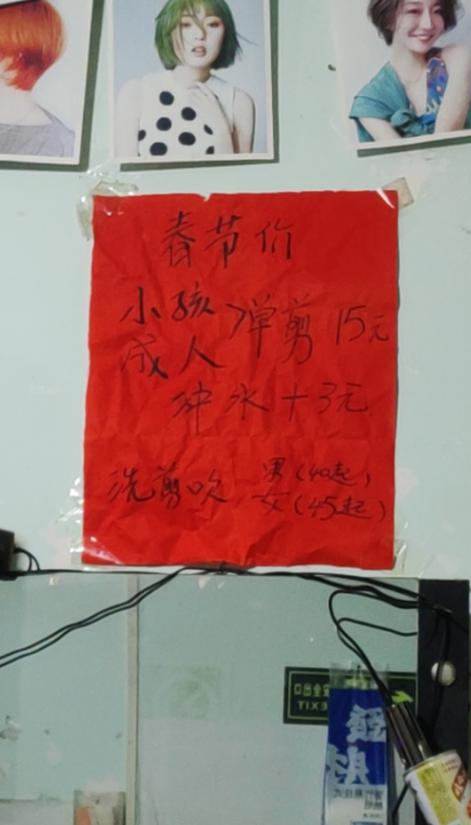 春节价
小孩
成人
>单剪 15元
冲水+3元
洗剪吹 男(40起)
女(45起)
安全出口
EXIT